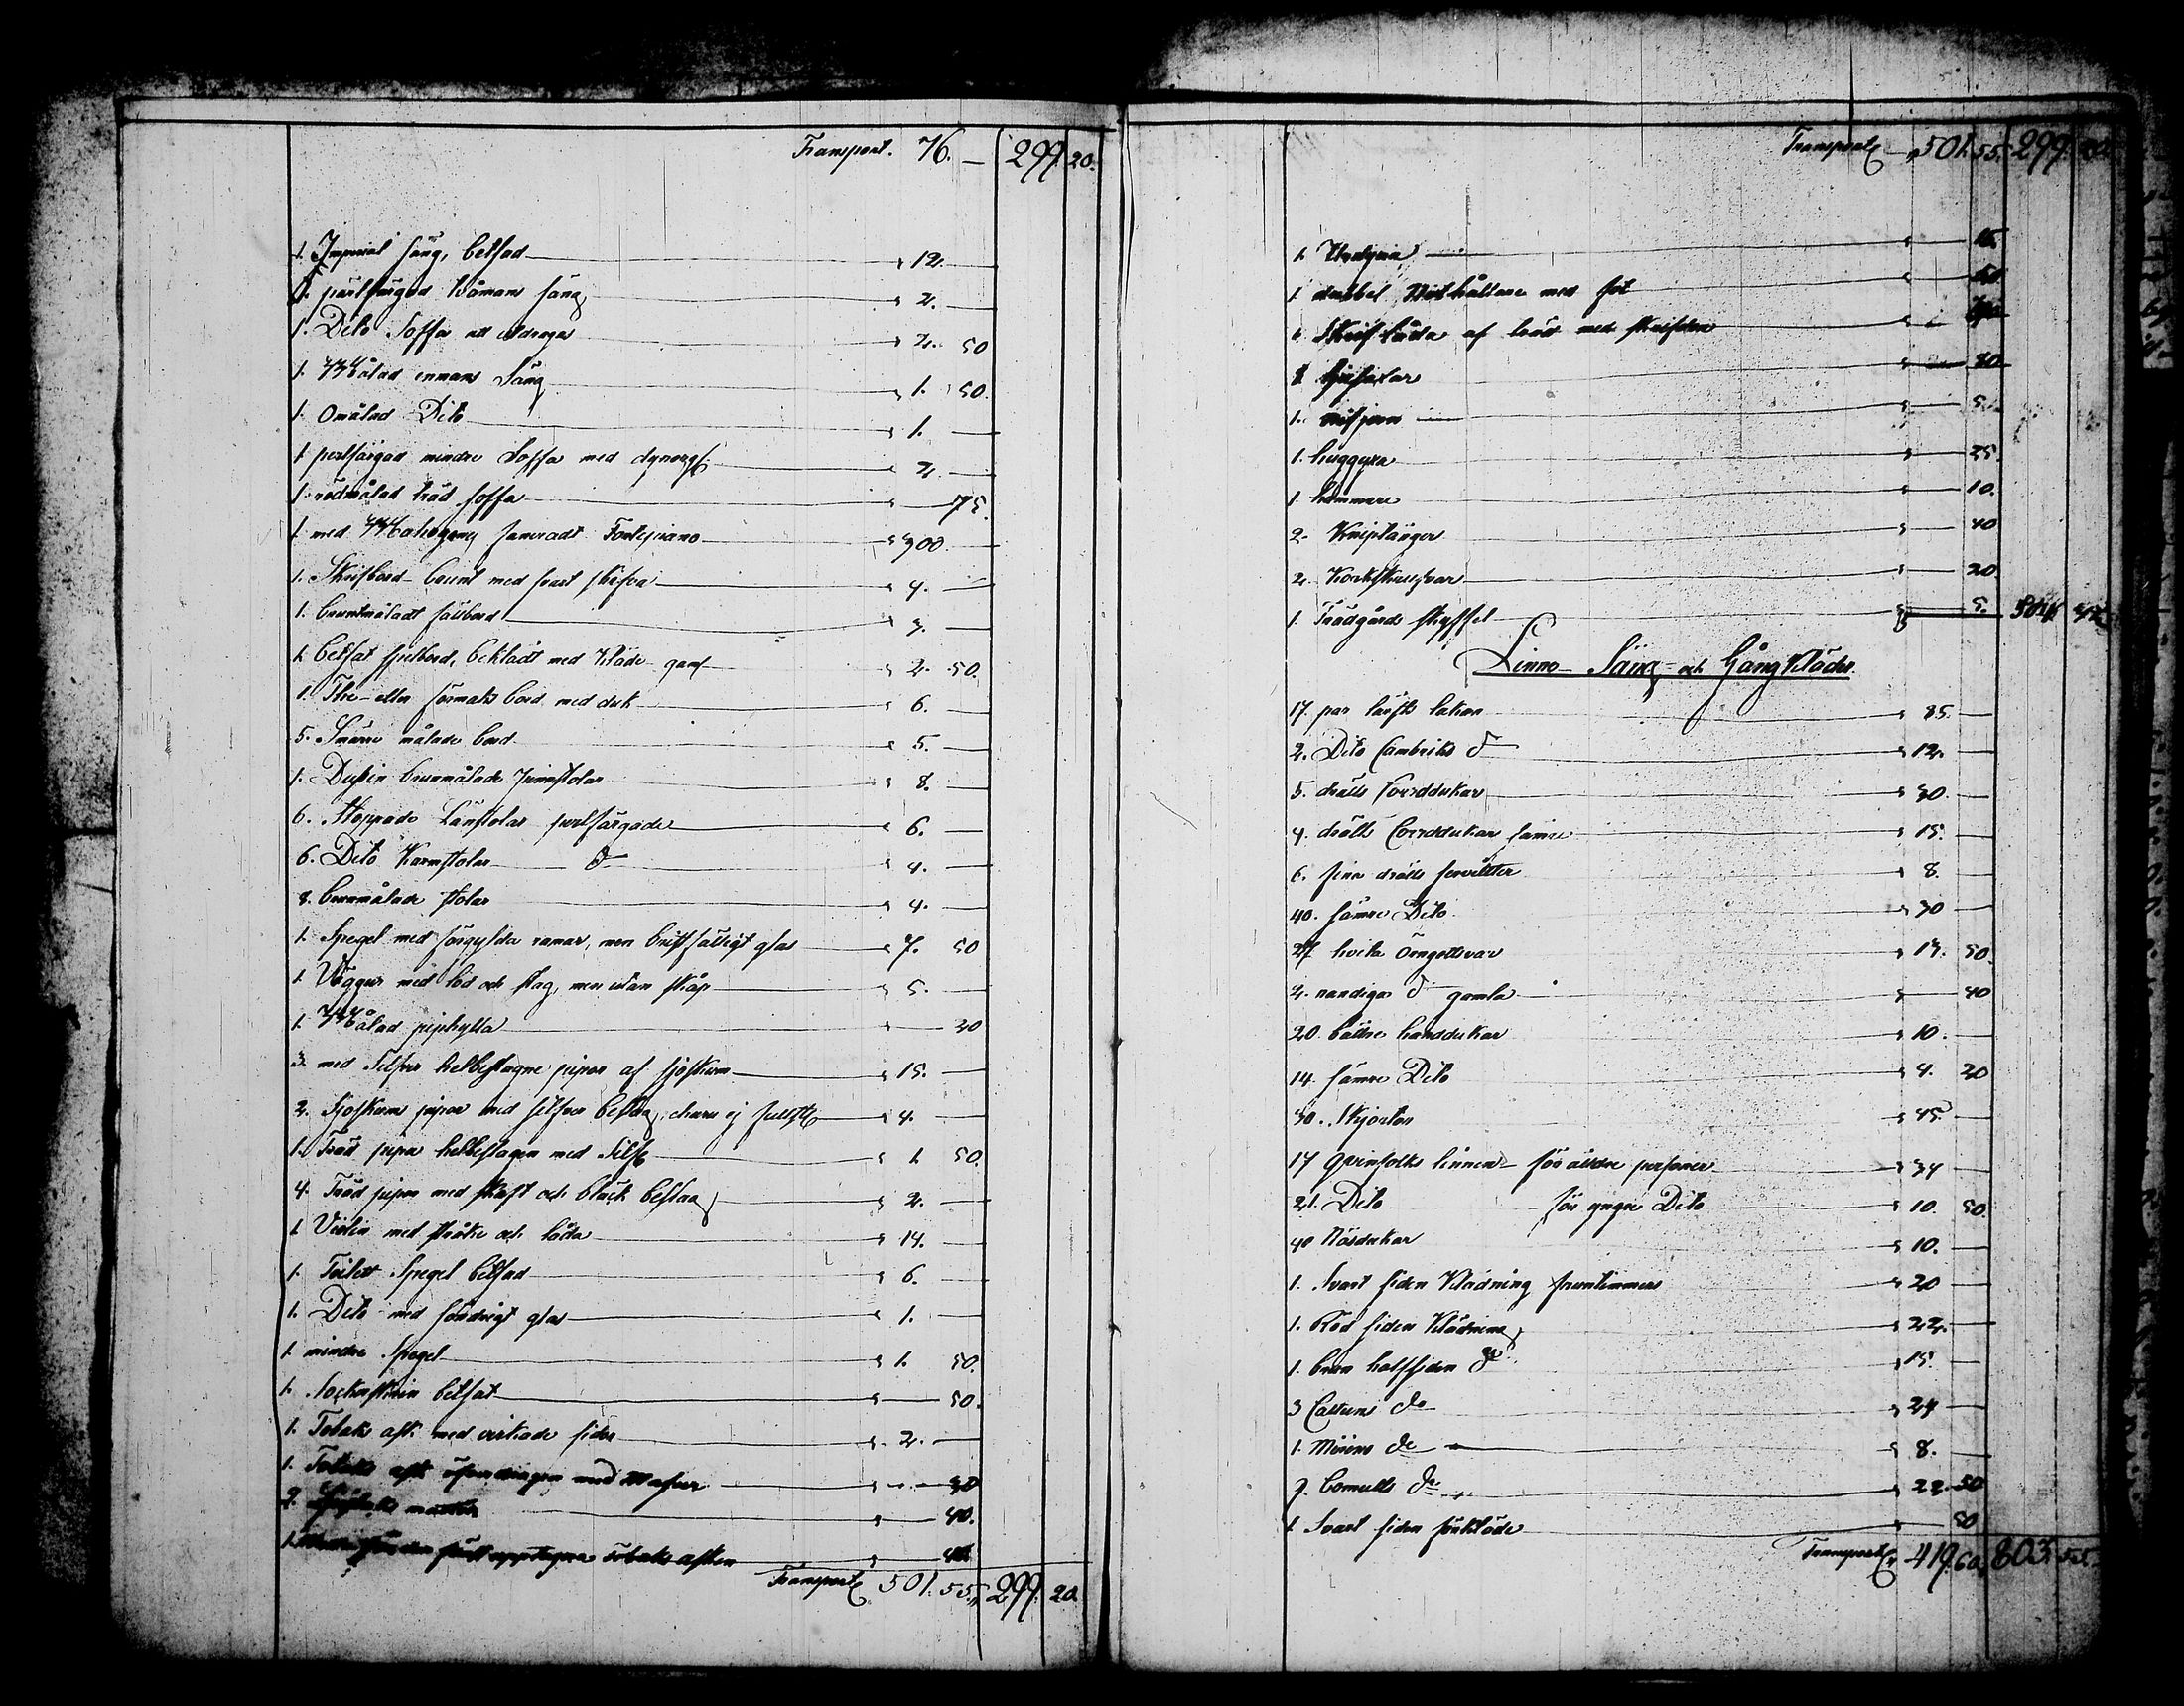 Transport. 76. — 299 20.
1. Imperial säng, betsad " 12. —
1. pärlfärgad tvåmans säng " 2. —
1. Dito Soffa att utdraga " 2. 50
1. Målad enmans Säng " 1. 50.
1. Omålad Dito " 1. —
1 perlfärgad mindre Soffa med dynor " 2. —
1. rödmålad träd soffa " — 75.
1 med Mahogany faneradt Fortepiano " 300. —
1. Skrifbord brunt med svart skifva " 4. —
1. brunmåladt fällbord " 3. —
1. betsat spelbord, beklädt med kläde 2. 50.
1. The- eller förmaks bord med duk " 6. —
5. Smärre målade bord " 5. —
1. Dussin brunmålade pinnstolar " 8. —
6. Stoppade Länstolar perlfärgade " 6. —
6. Dito Karmstolar d° " 4. —
8. brunmålade stolar " 4. —
1. Spegel med förgylda ramar, men bristfälligt glas " 7. 50
1 Väggur med lod och slag, men utan skåp " 5. —
1. Målad piphylla " — 30
3. med Silfver helbeslagne pipor af sjöskum " 15. —
2. Sjöskums pipor med silfver beslag, 4. —
1. Träd pipa helbeslagen med Silf " 1. 50.
4. Träd pipor med skaft och bläck beslag " 2. —
1. Violin med stråke och låda " 14. —
1. Toilett Spegel betsad " 6. —
1. Dito med sönd­rigt glas " 1. —
1 mindre Spegel " 1. 50.
1. Sockerskrin betsat " — 50.
1. Tobaks ask med virkade sidor " 2. —
1. Tobaks ask
40.
Tobaks asken
Transport 501. 55. 299. 20.
Transport " 501. 55. 299. 20.
1.
1 dubbel med fot
1 låda af träd med
1. " 5.
1. huggyxa " — 25.
1. hammare " — 10.
2. Kniptänger " — 40
2. Korkskrufvar " — 20
1. Trädgårds skyffel " — 5.
Linne- Säng- och Gång Kläder.
17. par lärfts lakan " 85. —
2. Dito Cambriks d° " 12. —
5. dräls borddukar " 30. —
4. dräls borddukar sämre " 15. —
6. fina dräls servietter " 8. —
40. sämre Dito " 30 —
27 hvita örngottsvar " 13. 50.
2. randiga d° gamla " — 40
20. bättre handdukar " 10. —
14. sämre Dito " 4. 20
30. Skjortor " 45. —
17 qvinfolks linnen för äldre personer " 34 —
21. Dito för yngre Dito " 10. 50.
40 Näsdukar " 10. —
1. Svart siden Klädning fruntimmers " 20 —
1. Röd siden Klädning " 22. —
1. brun halfsiden d° " 15. —
3 Cattuns d° " 24 —
1. Merino d° " 8. —
3. Bomulls d° " 22. 50
1 Svart siden förkläde " — 50
Transport " 419. 60. 803. 52.